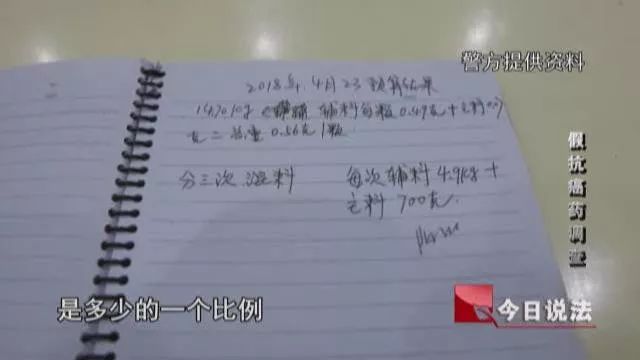 警方提供资料
2018年4月23预算结果
14.70kg 辅料每颗0.49克+主料0.07
克=总重0.56克/颗.
分三次混料 每次辅料4.9kg+
主料700克.
假抗癌药调查
今日说法
是多少的一个比例